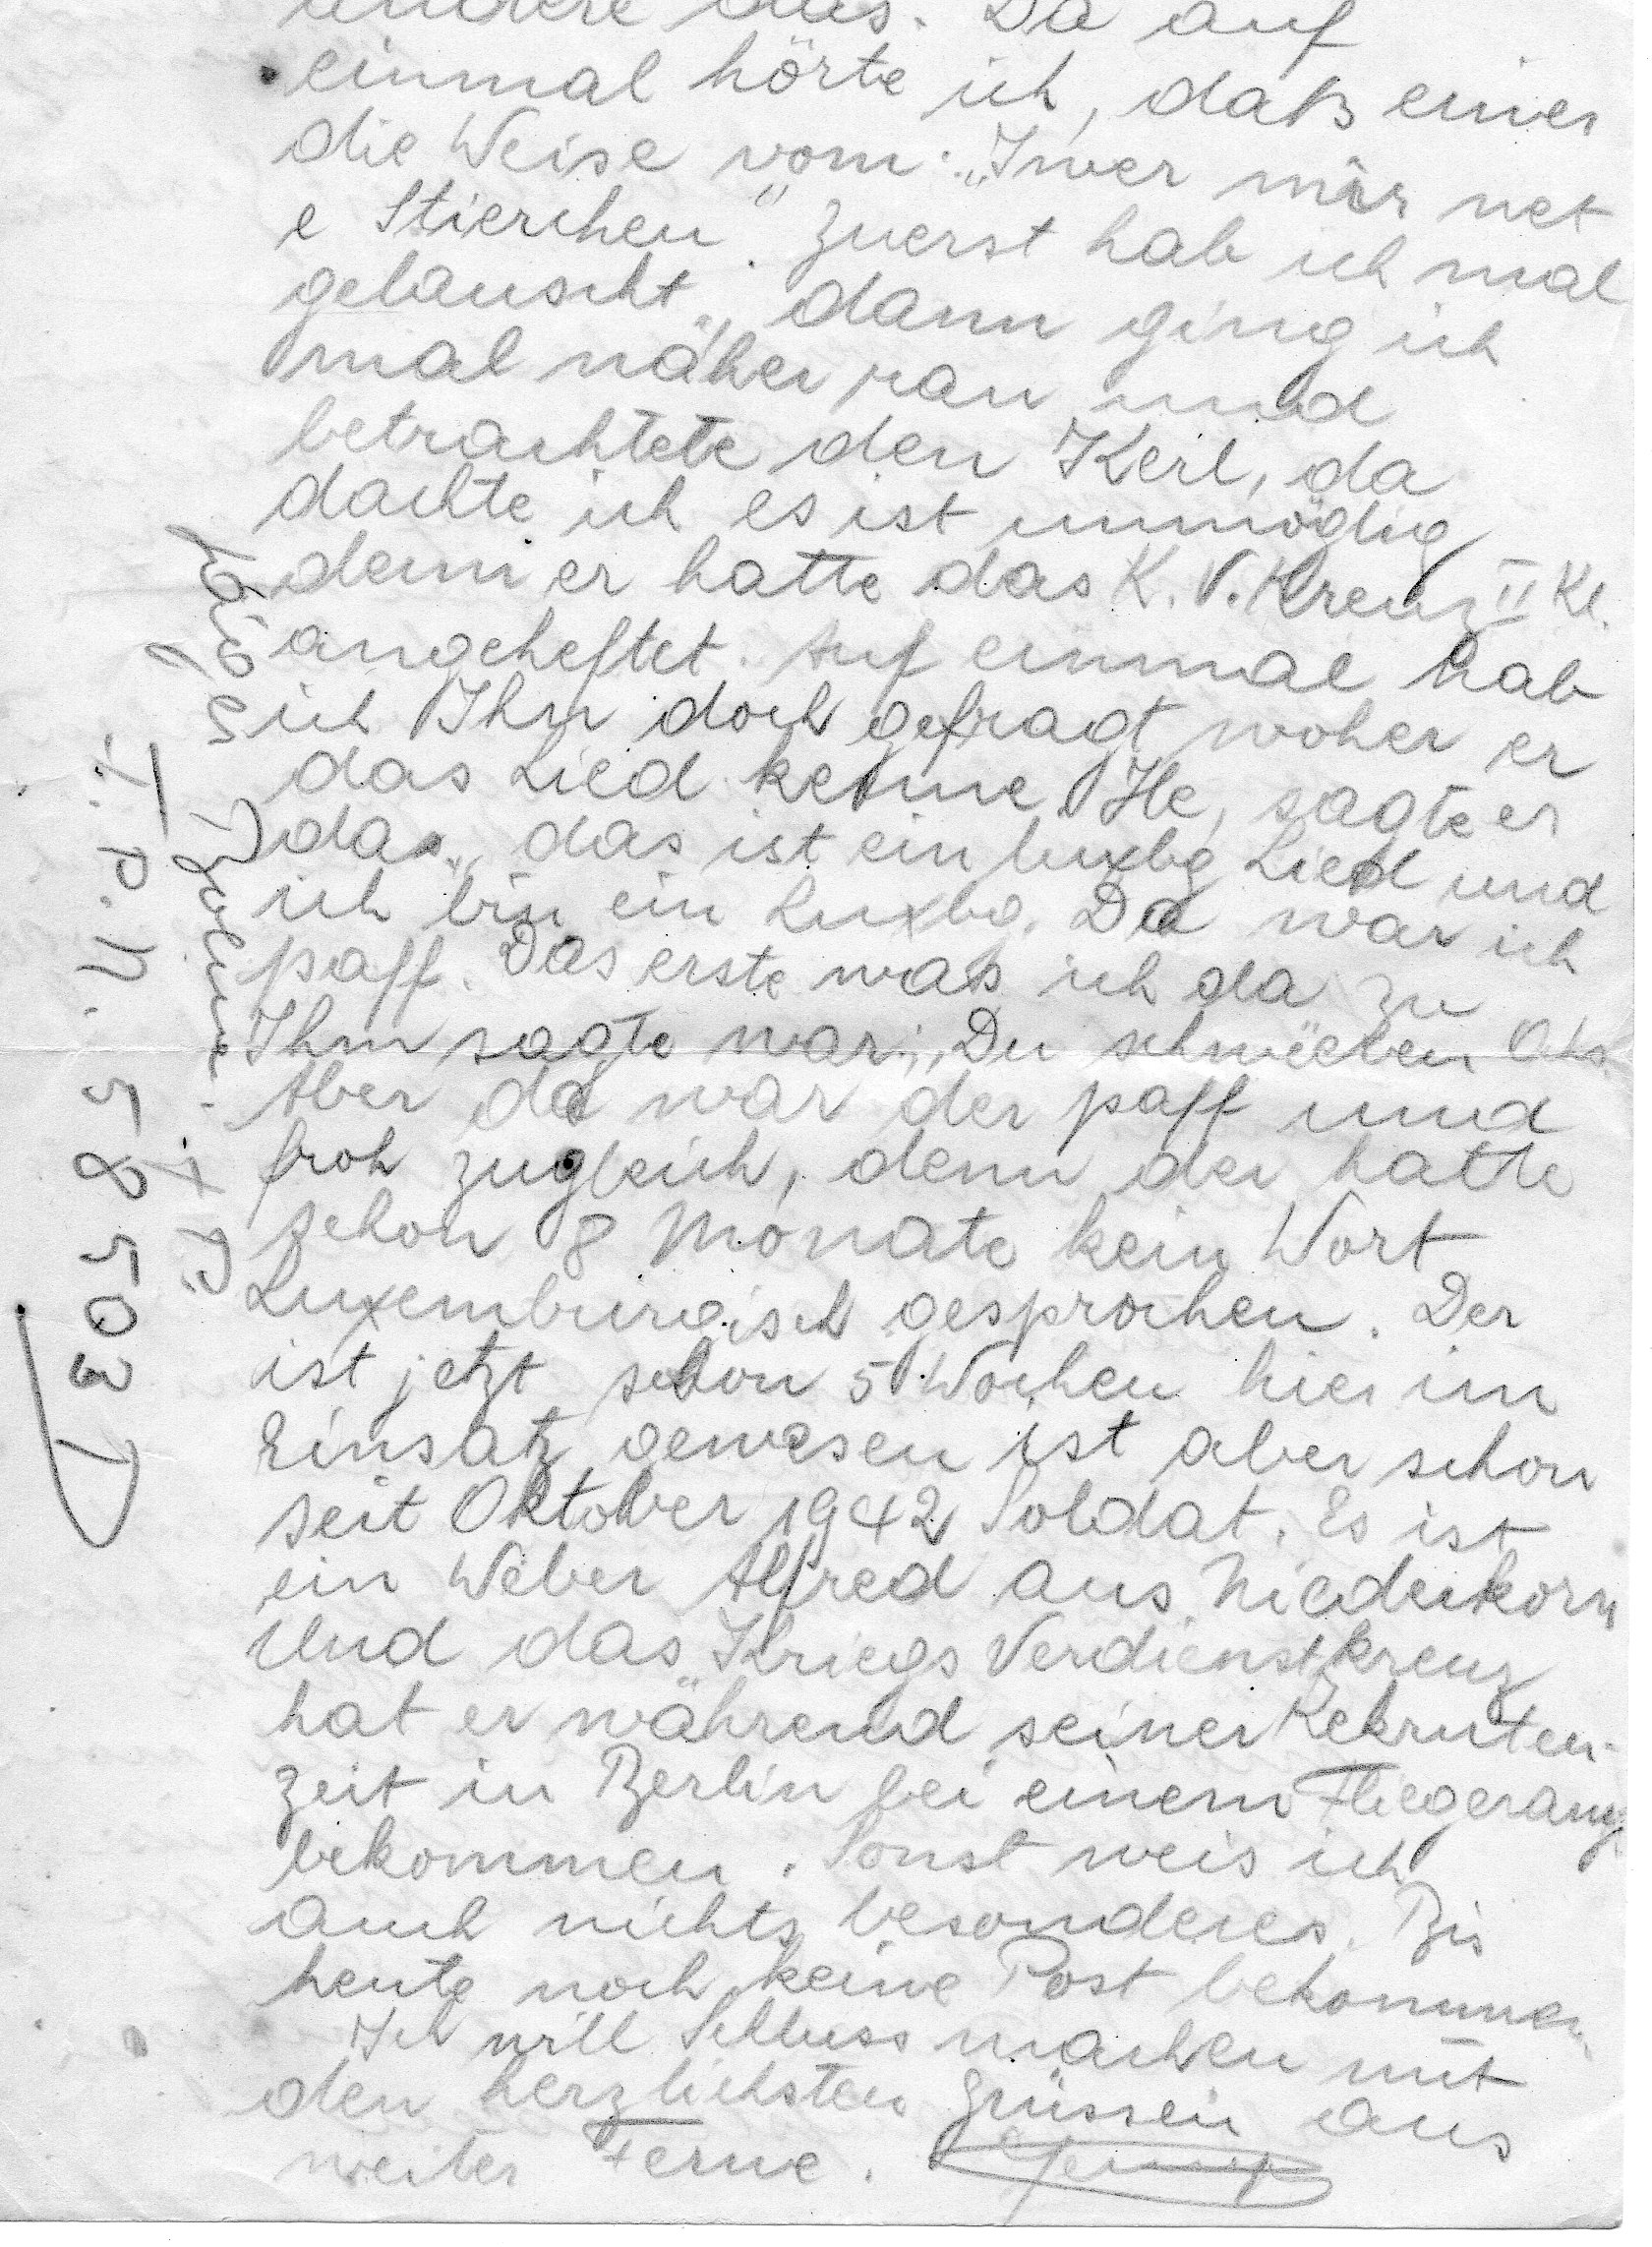 andere das. Da auf
einmal hörte ich, daß einer
die Weise vom: „Iwer mir net
e Stierchen" Zuerst hab ich mal
gelauscht„ dann ging ich
mal näher ran und
betrachtete den Kerl, da
dachte ich es ist unmöglig
denn er hatte das K.V. Kreuz II Kl.
angeheftet. Auf einmal hab
ich Ihn doch gefragt woher er
das Lied kenne. He, sagte er
da„ das ist ein luxbg Lied und
ich bin ein Luxbg. Da war ich
paff. Das erste was ich da zu
Ihm sagte war: „Du
Aber da war der paff und
froh zugleich, denn der hatte
schon 8 Monate kein Wort
Luxemburgisch gesprochen. Der
ist jetzt schon 5 Wochen hier im
Einsatz gewesen ist aber schon
seit Oktober 1942 Soldat. Es ist
ein Weber Alfred aus Niederkorn
Und das Kriegs Verdienstkreuz
hat er während seiner Rekruten-
zeit in Berlin bei einem Fliegerang.
bekommen. Sonst weis ich
auch nichts besonderes. Bis
heute noch keine Post bekommen.
Ich will Schluss machen mit
den herzlichsten Grüssen aus
weiter Ferne.